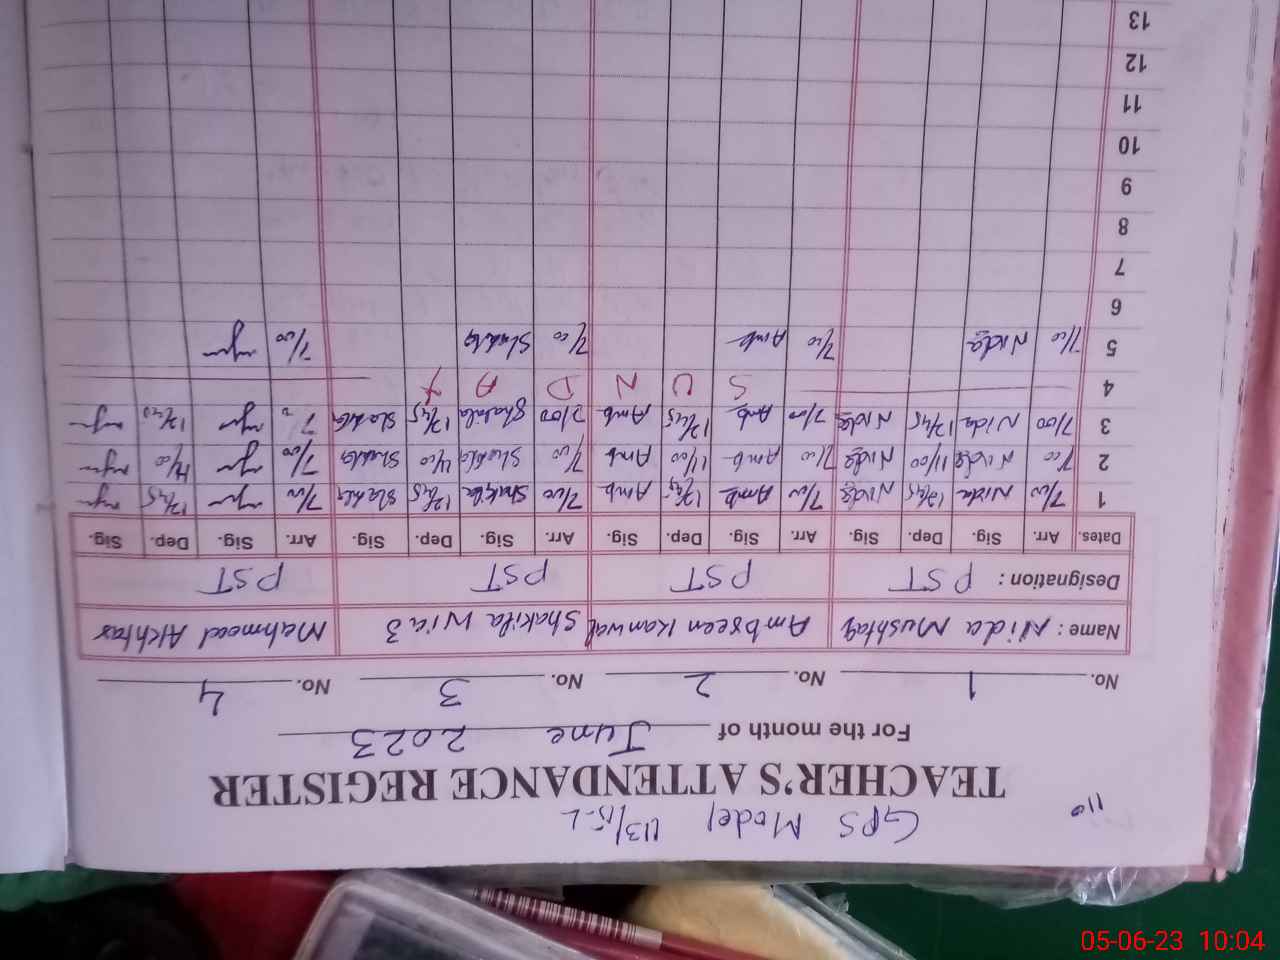 GPS Model 113/15-L
TEACHER'S ATTENDANCE REGISTER
For the month of June 2023
No. 1 No. 2 No. 3 No. 4
Name: Nida Mushtaq Ambreen Kanwal Shakila Niaz Mahmood Akhtar
Designation: PST PST PST PST
Dates. Arr. Sig. Dep. Sig. Arr. Sig. Dep. Sig. Arr. Sig. Dep. Sig. Arr. Sig. Dep. Sig.
1 7/00 Nida 12/45 Nida 7/00 Amb 12/45 Amb 7/00 Shakila 12/45 Shakila 7/00 12/45
2 7/00 Nida 11/00 Nida 7/00 Amb 11/00 Amb 7/00 Shakila 11/00 Shakila 7/00 11/00
3 7/00 Nida 12/45 Nida 7/00 Amb 12/45 Amb 7/00 Shakila 12/45 Shakila 12/45
4 S U N D A Y
5 7/00 Nida 7/00 Amb 7/00 Shakila 7/00
6
7
8
9
10
11
12
13
05-06-23 10:04